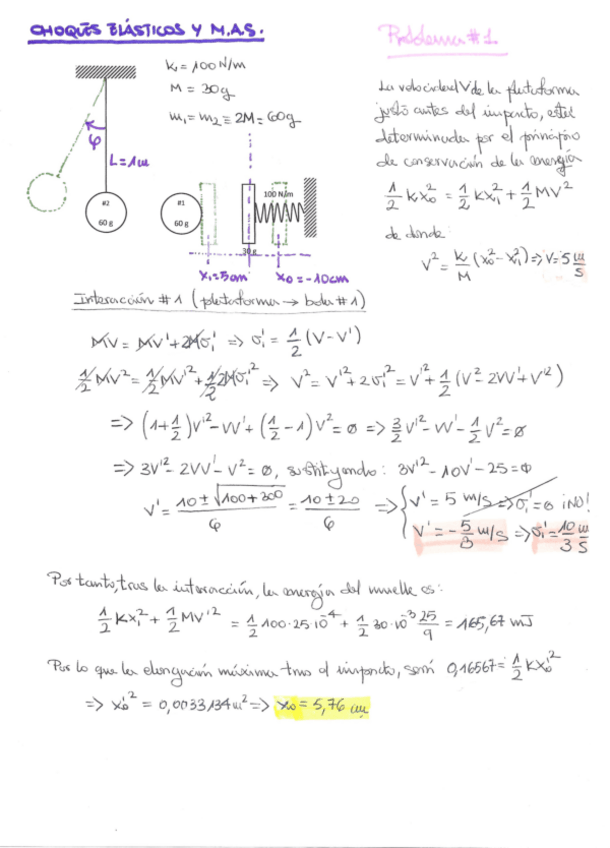 CHOQUES ELÁSTICOS Y M.A.S.
Problema #1
K = 100 N/m
M = 30g
m₁ = m₂ = 2M = 60g
φ
L = 1m
#2
60 g
#1
60 g
100 N/m
30 g
x₁ = 5cm
x₀ = -10cm
La velocidad V de la plataforma
justo antes del impacto, está
determinada por el principio
de conservación de la energía
1/2 Kx₀² = 1/2 Kx₁² + 1/2 MV²
de donde:
V² = K/M (x₀² - x₁²) => V = 5 m/s
Interacción #1 (plataforma → bola #1)
MV = MV' + 2Mv₁' => v₁' = 1/2 (V - V')
1/2 MV² = 1/2 MV'² + 1/2 2Mv₁'² => V² = V'² + 2v₁'² = V'² + 1/2 (V² - 2VV' + V'²)
=> (1 + 1/2) V'² - VV' + (1/2 - 1) V² = 0 => 3/2 V'² - VV' - 1/2 V² = 0
=> 3V'² - 2VV' - V² = 0, sustituyendo: 3V'² - 10V' - 25 = 0
V' = (10 ± √(100 + 300))/6 = (10 ± 20)/6 => { V' = 5 m/s => v₁' = 0 ¡NO!
V' = -5/3 m/s => v₁' = 10/3 m/s
Por tanto, tras la interacción, la energía del muelle es:
1/2 Kx₁² + 1/2 MV'² = 1/2 100·25·10⁻⁴ + 1/2 30·10⁻³ 25/9 = 165,67 mJ
Por lo que la elongación máxima tras el impacto, será 0,16567 = 1/2 Kx₀'²
=> x₀'² = 0,0033134 m² => x₀ = 5,76 cm